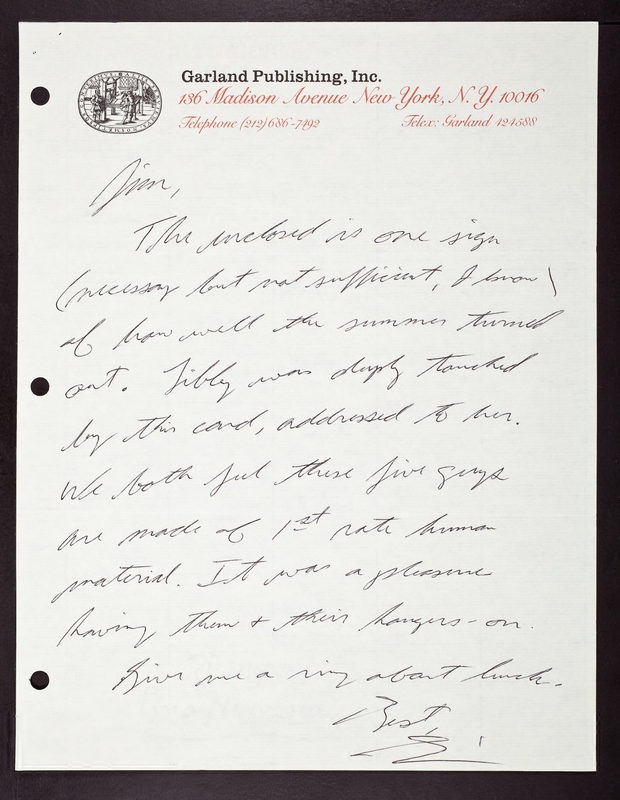 Garland Publishing, Inc.
136 Madison Avenue New York, N.Y. 10016
Telephone (212) 686-7492 Telex: Garland 424588
Jim,
The enclosed is one sign
(necessary but not sufficient, I know)
of how well the summer turned
out. Libby was deeply touched
by this card, addressed to her.
We both feel these five guys
are made of 1st rate human
material. It was a pleasure
having them + their hangers-on.
Give me a ring about lunch.
Best,